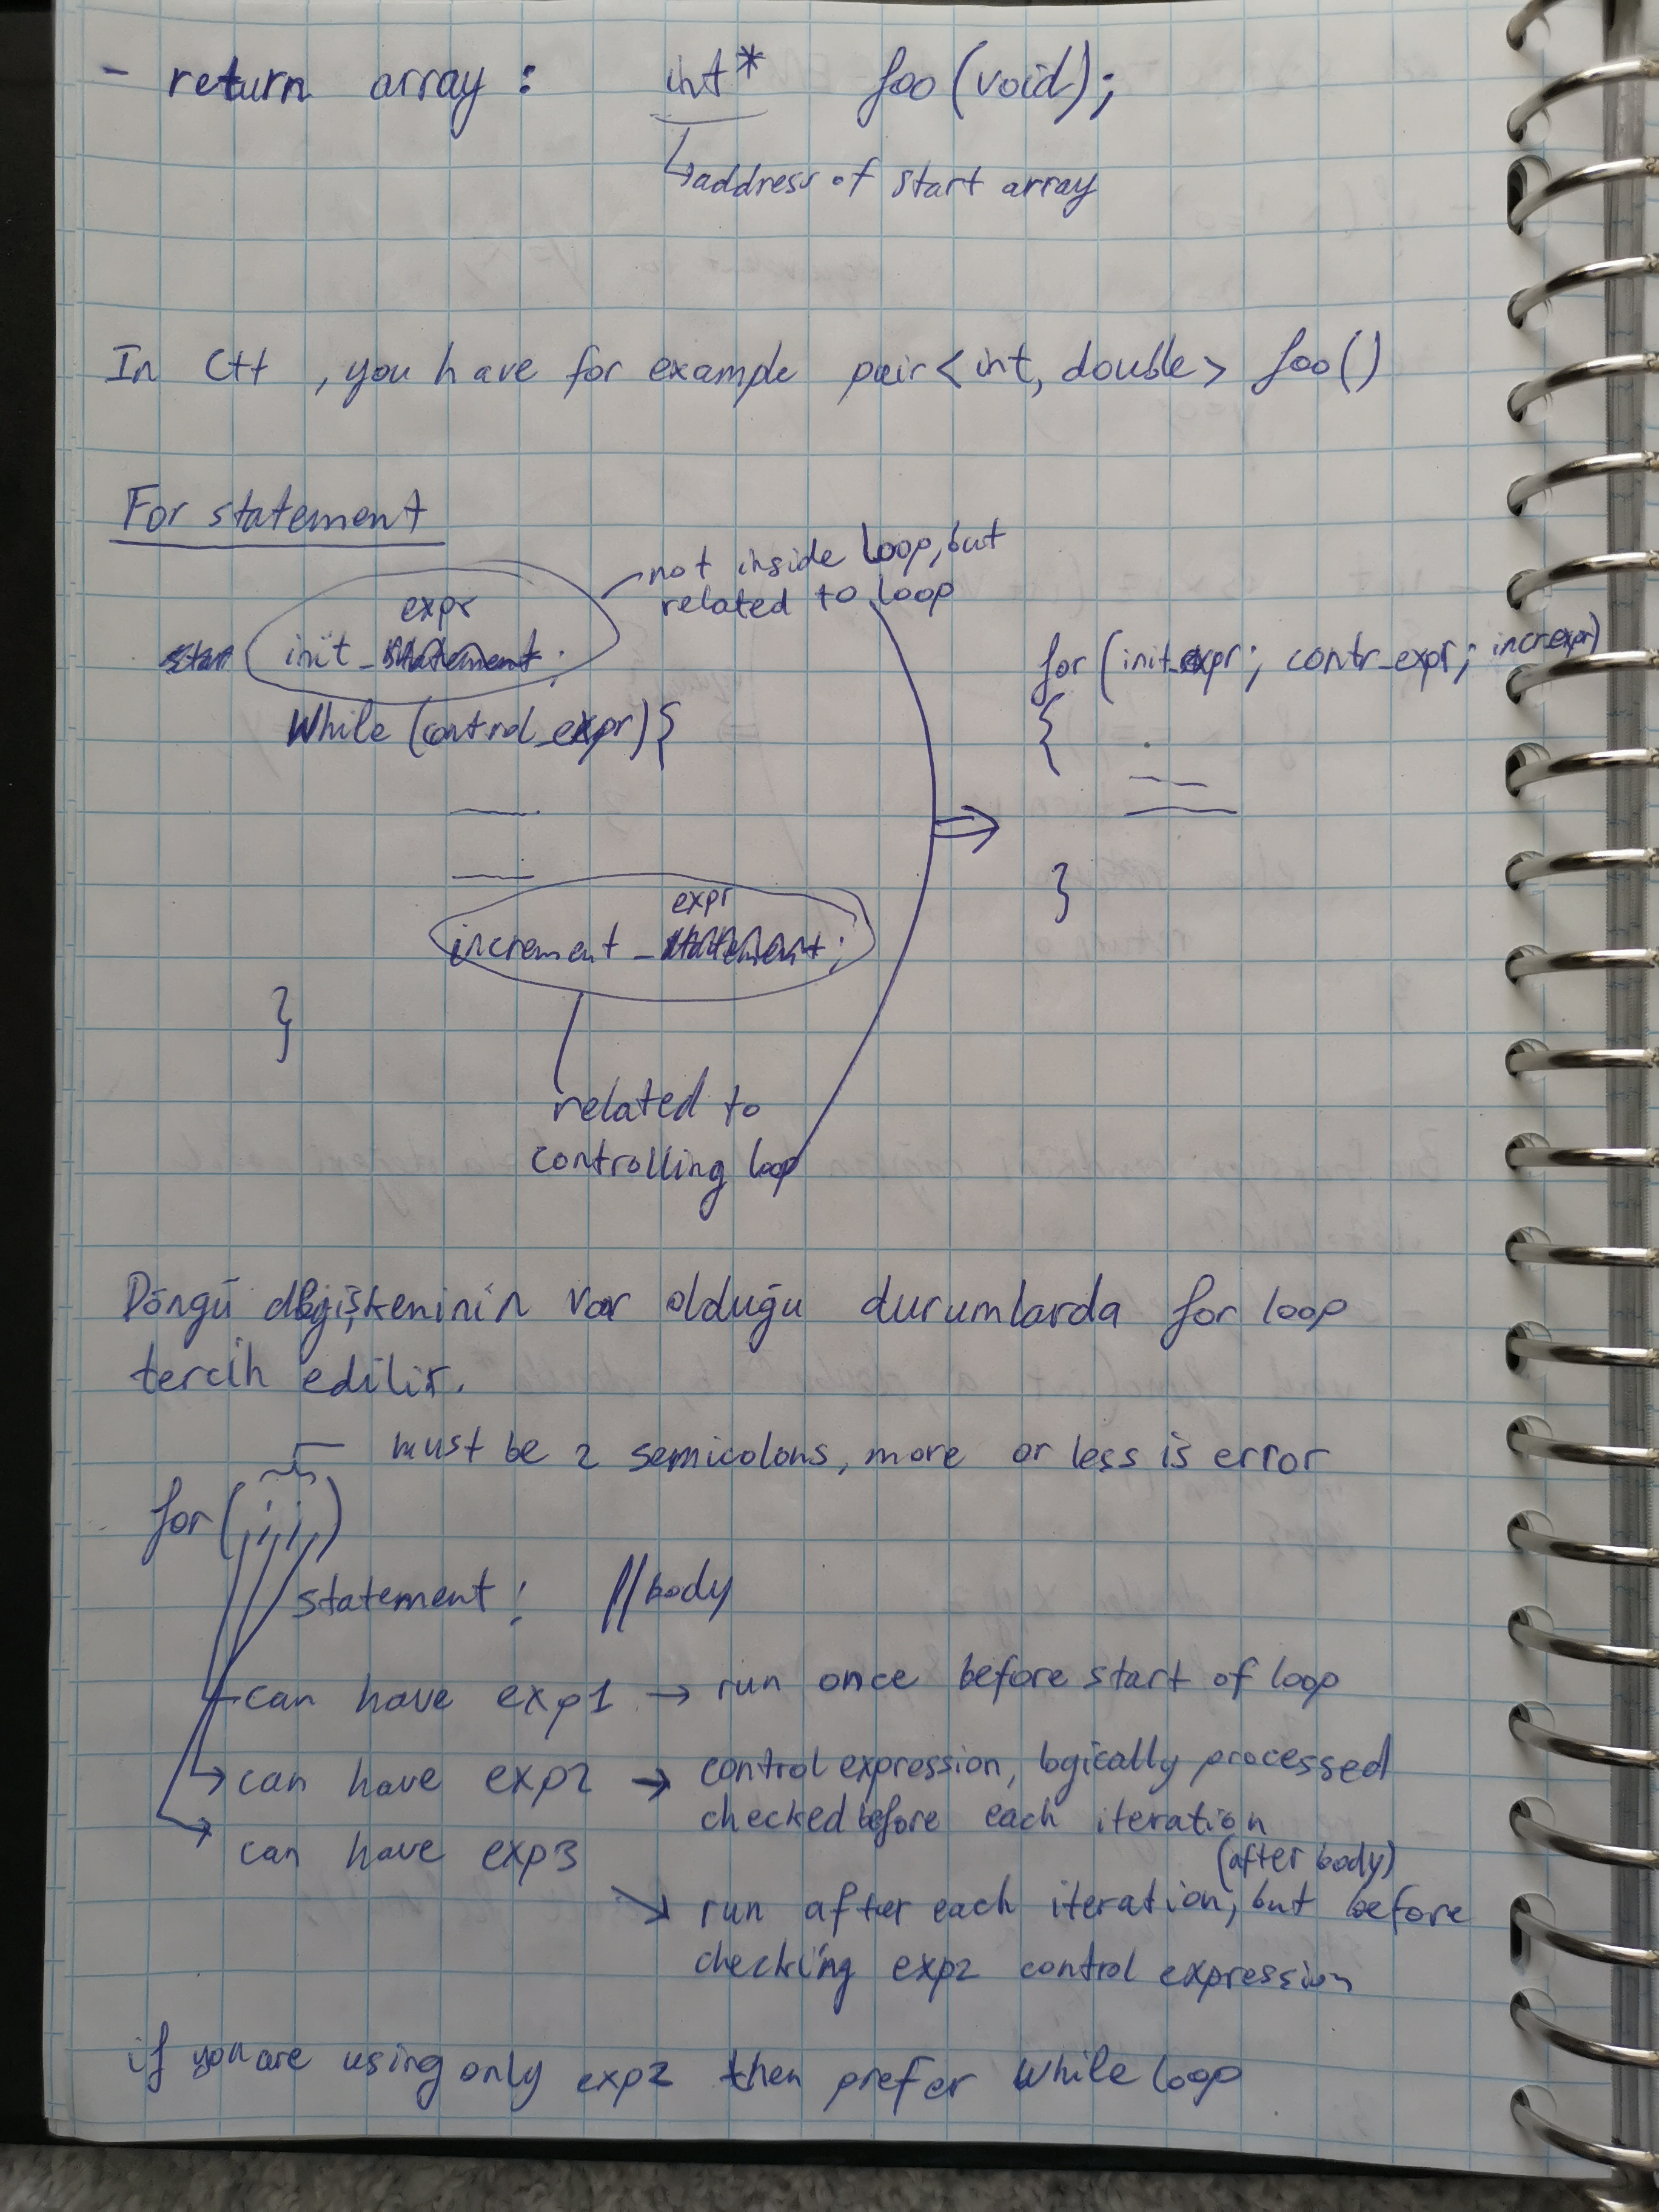 - return array : int* foo(void);
↳ address of start array
In C++, you have for example pair<int, double> foo()
For statement
not inside loop, but
related to loop
expr
init_statement;
While (control_expr){
expr
increment_statement;
}
related to
controlling loop
for (init_expr; contr_expr; incr_expr)
{
}
Döngü değişkeninin var olduğu durumlarda for loop
tercih edilir.
must be 2 semicolons, more or less is error
for(_;_;_)
statement; //body
can have exp1 → run once before start of loop
can have exp2 → control expression, logically processed
checked before each iteration
can have exp3
(after body)
↘ run after each iteration, but before
checking exp2 control expression
if you are using only exp2 then prefer While loop